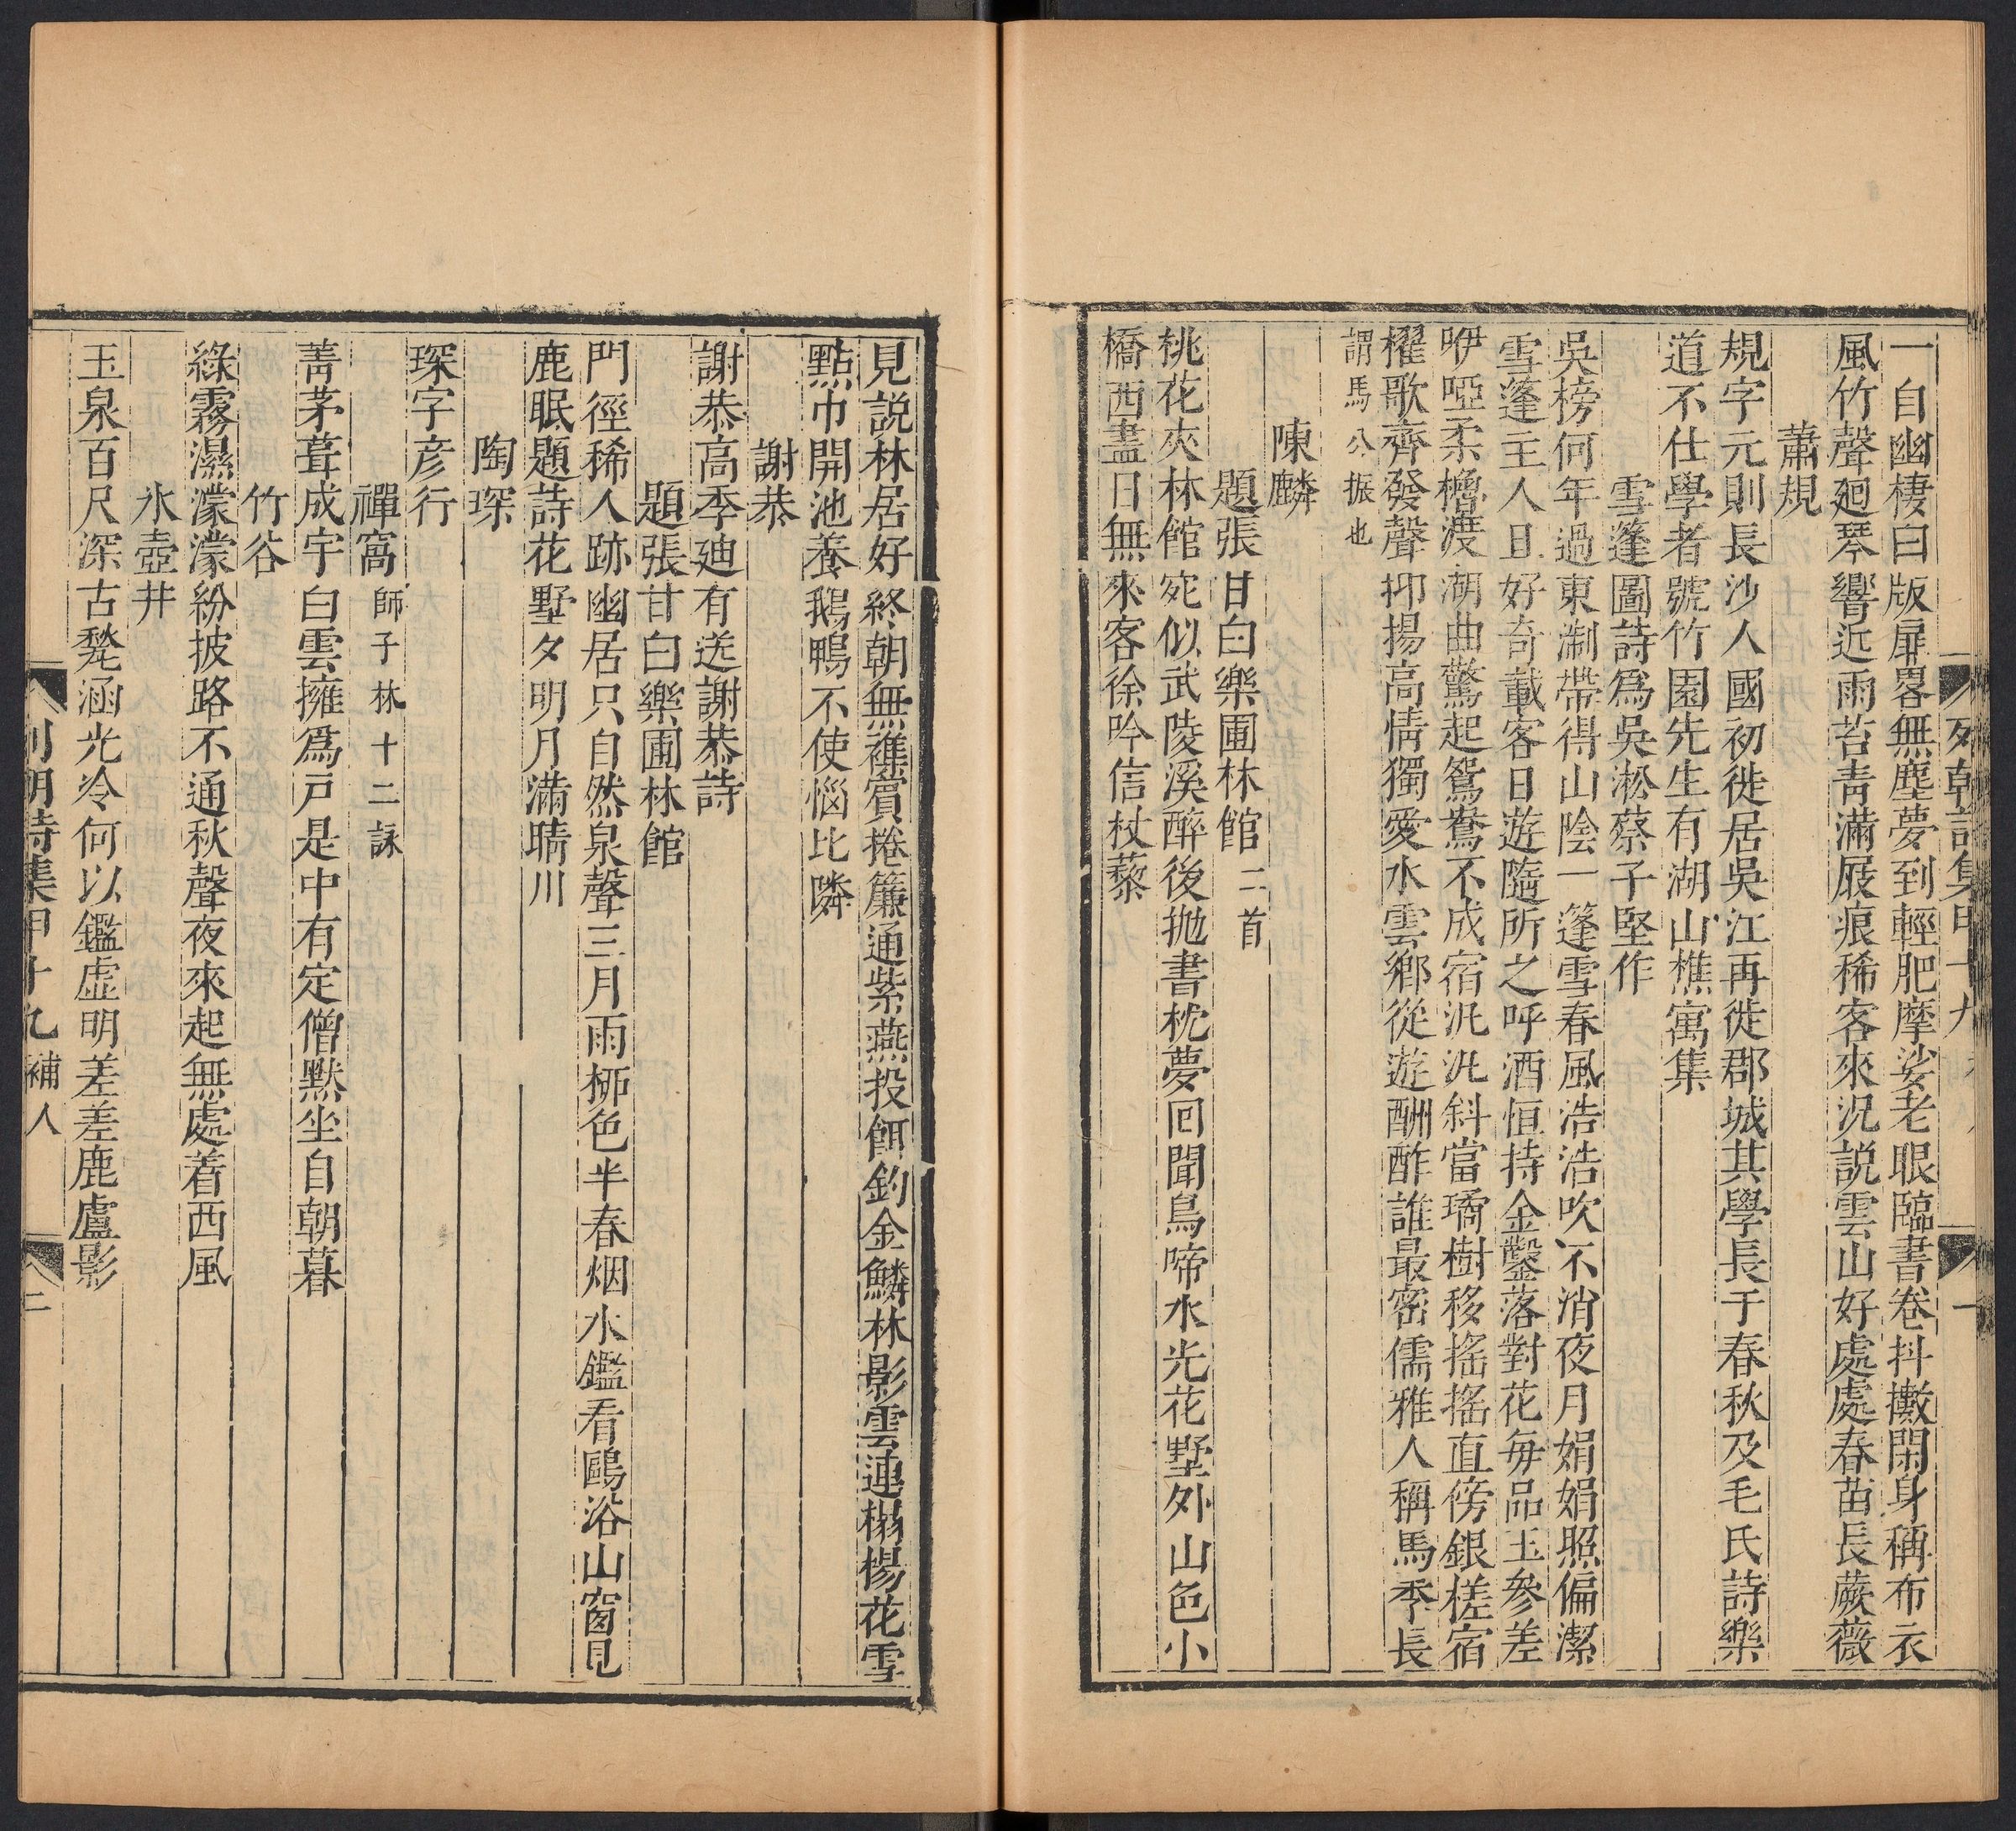 列朝詩集甲十九
一
一自幽棲白版扉畧無塵夢到輕肥摩娑老眼臨書卷抖擻閑身稱布衣
風竹聲廻琴響近雨苔青滿屐痕稀客來況説雲山好處處春苗長蕨薇
蕭規
規字元則長沙人國初徙居吳江再徙郡城其學長于春秋及毛氏詩樂
道不仕學者號竹園先生有湖山樵寓集
雪篷圖詩爲吳淞蔡子堅作
吳榜何年過東淛帶得山陰一篷雪春風浩浩吹不消夜月娟娟照偏潔
雪篷主人且好奇載客日遊隨所之呼酒恒持金鑿落對花每品玉參差
咿啞柔櫓渡湖曲驚起鴛鴦不成宿汎汎斜當璚樹移搖搖直傍銀槎宿
櫂歌齊發聲抑揚高情獨愛水雲鄉從遊酬酢誰最密儒雅人稱馬季長
謂馬公振也
陳麟
題張甘白樂圃林館二首
桃花夾林館宛似武陵溪醉後拋書枕夢回聞鳥啼水光花墅外山色小
橋西盡日無來客徐吟信杖藜
見説林居好終朝無襍賓捲簾通紫燕投餌釣金鱗林影雲連榻楊花雪
點巾開池養鵝鴨不使惱比隣
謝恭
謝恭高季廸有送謝恭詩
題張甘白樂圃林館
門徑稀人跡幽居只自然泉聲三月雨桺色半春烟水鑑看鷗浴山窗見
鹿眠題詩花墅夕明月滿晴川
陶琛
琛字彦行
禪窩師子林十二詠
菁茅葺成宇白雲擁爲戸是中有定僧默坐自朝暮
竹谷
綠霧濕濛濛紛披路不通秋聲夜來起無處着西風
氷壺井
玉泉百尺深古甃涵光冷何以鑑虛明差差鹿盧影
列朝詩集甲十九補人
二